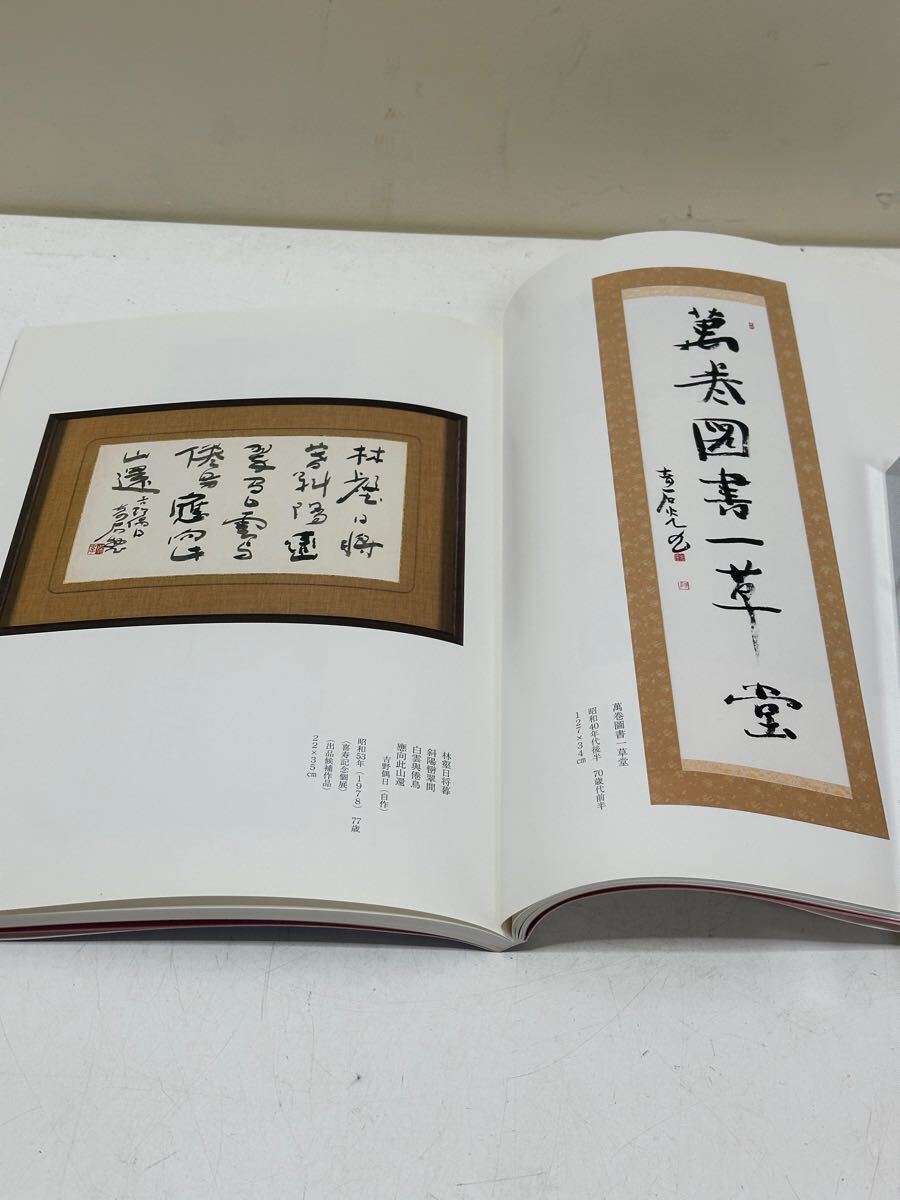 萬巻図書一草堂
萬巻圖書一草堂
昭和40年代後半　70歳代前半
127×34㎝
林壑日将
暮斜陽樹
翠間白雲与
倦鳥應向此
山還
吉野偶日
林壑日将暮
斜陽樹翠間
白雲與倦鳥
應向此山還
吉野偶日（自作）
昭和53年（1978）　77歳
（喜寿記念個展）
（出品候補作品）
22×35㎝